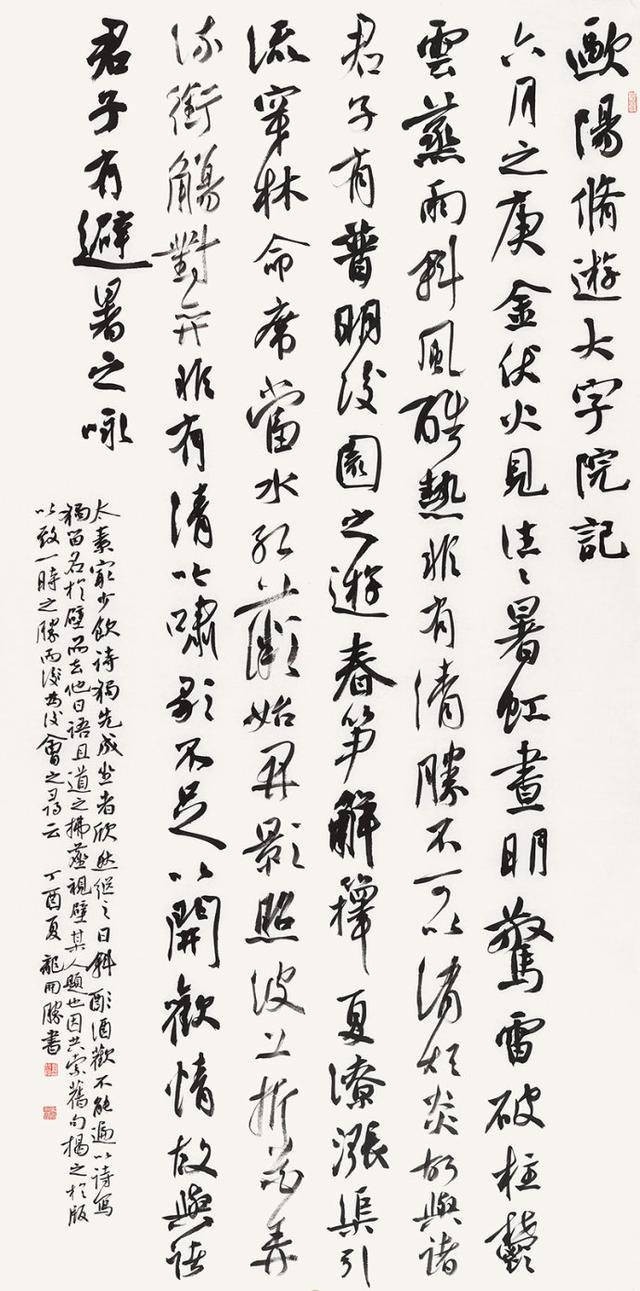 歐陽脩遊大字院記
六月之庚金伏火見往〻暑虹晝明驚雷破柱鬱
雲蒸雨斜風酷熱非有清勝不可以消煩炎故與諸
君子有普明後園之遊春笋解籜夏潦漲渠引
流穿林命席當水紅薇始開影照波上折花弄
流銜觴對弈非有清吟嘯歌不足以開歡情故與諸
君子有避暑之咏
太素最少飲詩獨先成坐者欣然繼之日斜酌酒歡不能遍以詩寫
獨留名於壁而去他日語且道之拂塵視壁某人題也因共索舊句揭之於版
以致一時之勝而後為後會之尋云 丁酉夏 龍開勝書